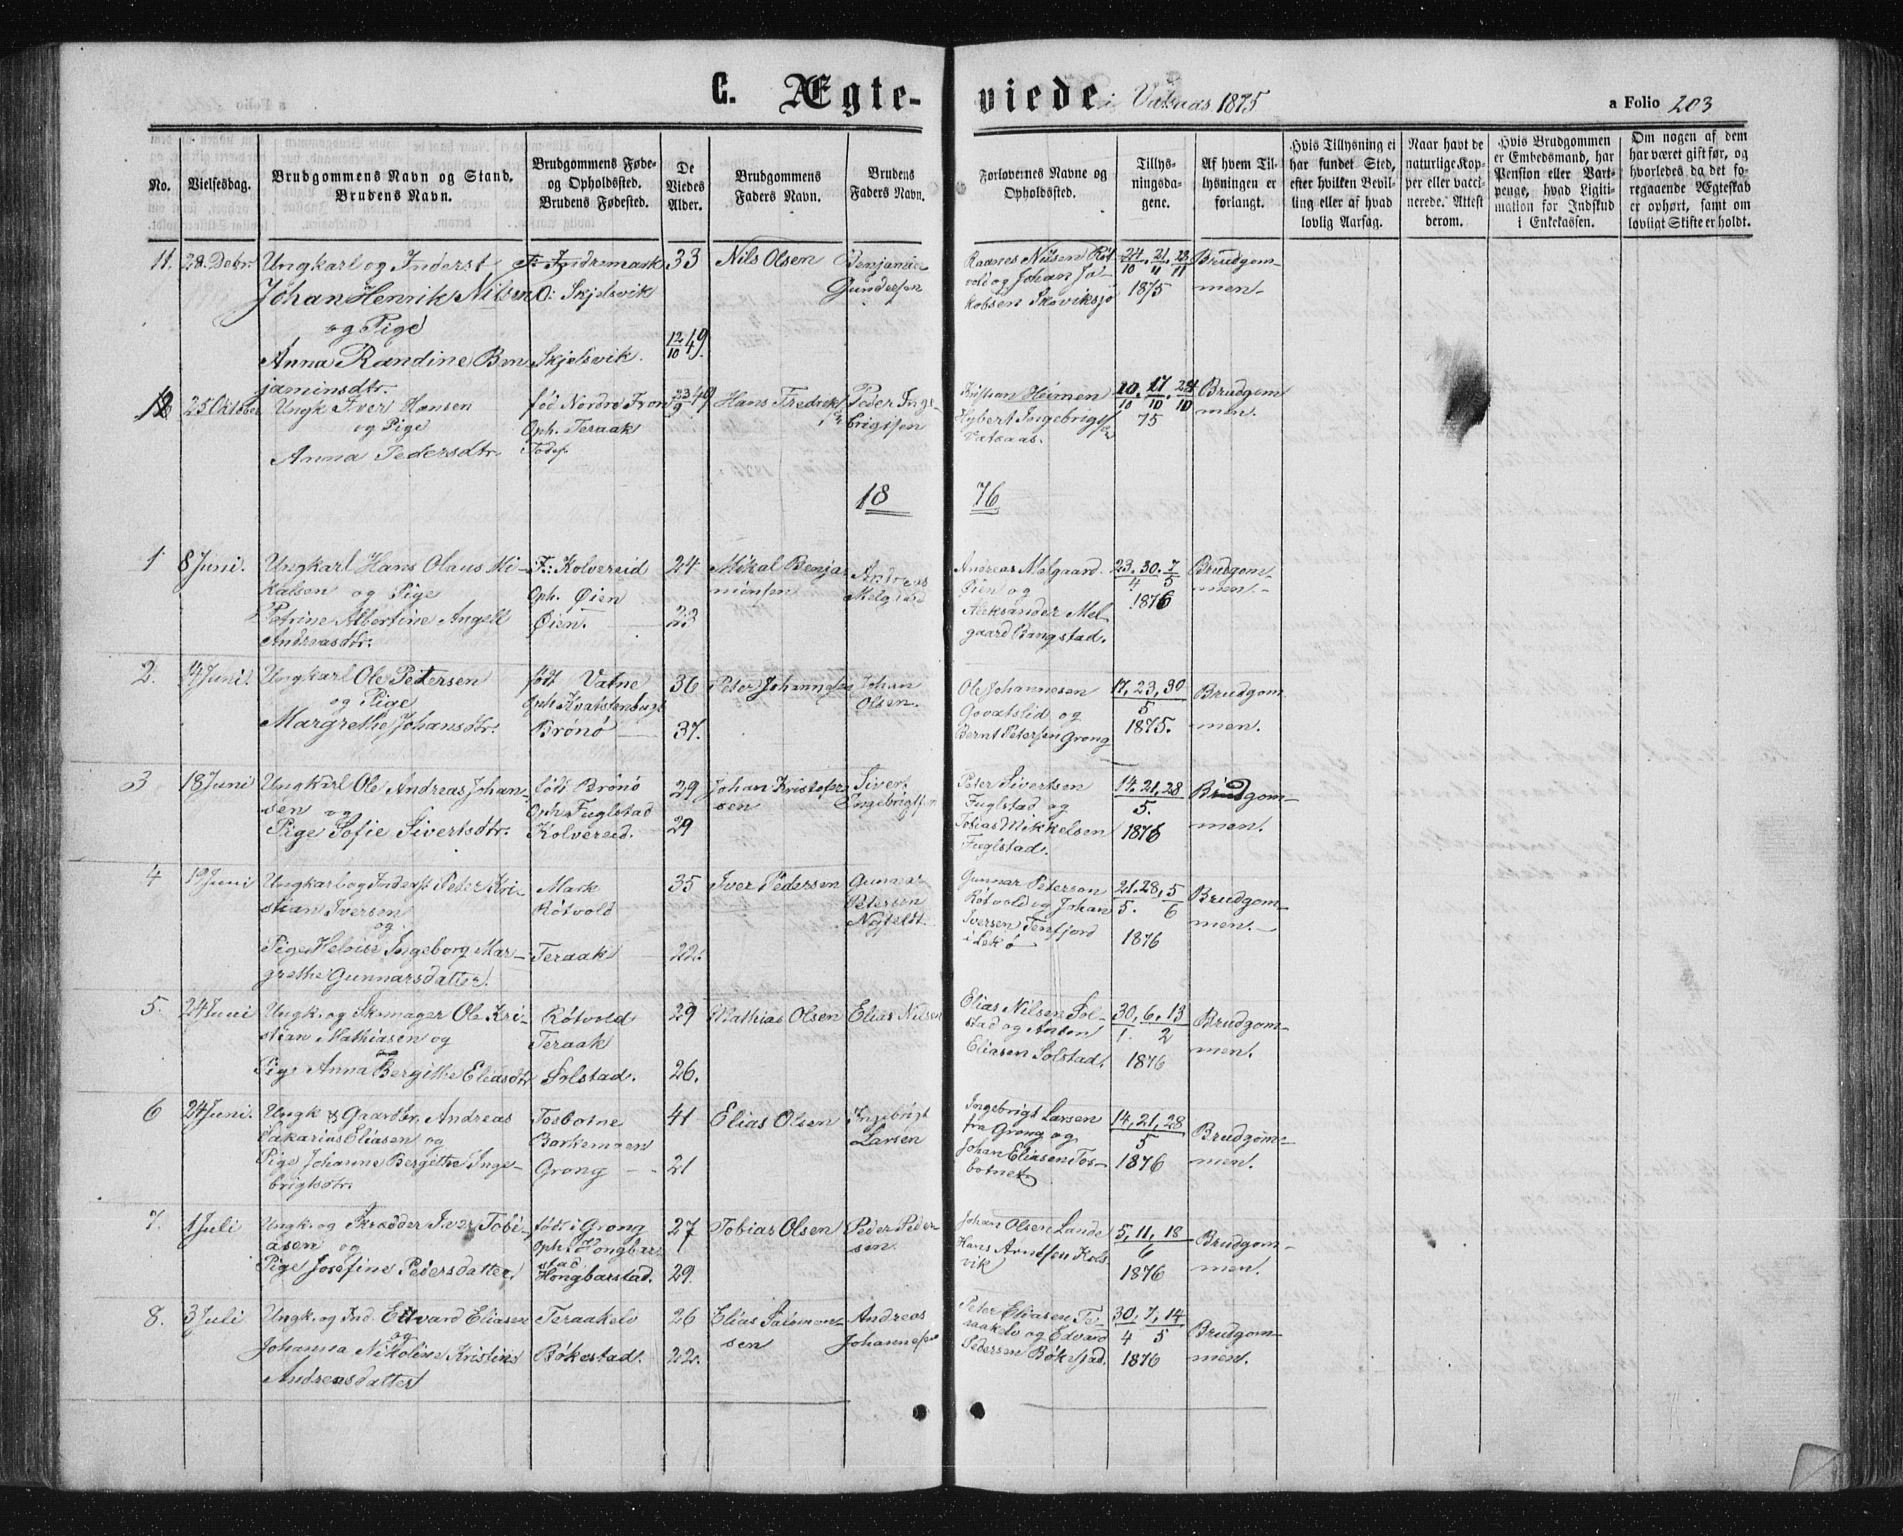 C. Ægte-
viede i Vatnaas 1875
a Folio 203
No.
Vielsesdag.
Brudgommens Navn og Stand.
Brudens Navn.
Brudgommens Føde-
og Opholdssted.
Brudens Fødested.
De
Viedes
Alder.
Brudgommens
Faders Navn.
Brudens
Faders Navn.
Forlovernes Navne og
Opholdssted.
Tillys-
ningsda-
gene.
Af hvem Til-
lysningen er
forlangt.
Hvis Tillysning ei
har fundet Sted,
efter hvilken Bevil-
ling eller af hvad
lovlig Aarsag.
Naar havt de
naturlige Kop-
per eller vacci-
nerede. Attest
derom.
Hvis Brudgommen
er Embedsmand, har
Pension eller Vart-
penge, hvad Ligiti-
mation for Indskud
i Enkekassen.
Om nogen af dem
har været gift før, og
hvorledes da det fo-
regaaende Ægteskab
er ophørt, samt om
lovligt Skifte er holdt.
11. 28. Debr.
Ungkarl og Inderst
Johan Henrik Nilsen
og Pige
Anna Randine Ben-
jaminsdtr.
O: Skjelsvik
Skjelsvik.
33
12/10 49.
Nils Olsen
Benjamin
Gundersen
Raanes Nilsen Röt
vold og Johan Ja-
kobsen Skaviksjø
24/10, 21/11, 28/11
1875
Brudgom-
men.
12 25 Oktober
Ungk. Iver Hansen
og Pige
Anna Pedersdtr.
fød Nordre Fron
Oph. Teraak
23/9 49
Hans Fredriks
Peder Inge-
brigtsen
Kristian Heimen
Hybert Ingebrigts
Vatsaas.
10/10, 17/10, 24/10
75
Brudgom
men.
18 76
1. 8 Juni.
Ungkarl Hans Olaus Mi-
kalsen og Pige
Petrine Albertine Angell
Andreasdtr.
F: Kolvereid
Oph. Øien
Øien.
24
23
Mikal Benja-
minsen
Andreas
Melgaard
Andreas Melgaard
Øien og
Aleksander Mel-
gaard Bangstad.
23. 30. 7
4 5
1876
Brudgom-
men.
2. 14 Juni.
Ungkarl Ole Petersen
og Pige
Margrethe Johansdtr.
født Vatne
Brønø
36
37.
Peter Johannesen
Johan
Olsen.
Ole Johannesen
Gavatslid og
Bernt Petersen Grong
17, 23, 30
5
1875.
Brudgom
men.
3 18 Juni
Ungkarl Ole Andreas Johan-
sen og
Pige Sofie Sivertsdtr.
född Brönö
Oph. Fuglstad
Kolvereid.
29
29
Johan Kristofer
sen
Sivert
Ingebrigtsen
Peter Sivertsen
Fuglstad og
Tobias Mikkelsen
Fuglstad.
14, 21, 28
5.
1876
Brudgom-
men.
4 19 Juni
Ungkarl og Inderst Peter Kri-
stian Iversen
og
Pige Heloise Ingeborg Mar-
grethe Gunnarsdatter.
Mark
Rötvold
Teraak
35
22.
Iver Pedersen
Gunnar
Petersen
Gunnar Peterson
Rötvold og Johan
Iversen Tenfjord
i Lekø
21, 28, 5
5. 6
1876
Brudgom-
men.
5. 24 Juni
Ungk. og Skomager Ole Kri-
stian Mathiasen og
Pige Anna Bergithe Eliasdtr
Rötvold
Teraak
Solstad.
29
26.
Mathias Olsen
Elias Nilsen
Elias Nilsen Sol-
stad og Anton
Eliasen Solstad.
30, 6, 13
1. 2
1876
Brudgom-
men.
6 24 Juni.
Ungk & Gaardbr. Andreas
Sakarias Eliasen og
Pige Johanne Bergithe Inge-
brigtsdtr.
Tosbotne
Barkemoen
Grong
41
21
Elias Olsen
Ingebrigt
Larsen
Ingebrigt Larsen
fra Grong og
Johan Eliasen Tos-
botnet.
14, 21, 28
5
1876
Brudgom-
men.
7. 1 Juli
Ungk. og Skrædder Iver Tobi-
asen og
Pige Josefine Pedersdatter.
födt i Grong
Oph. Hongbar
stad
Hongbarstad.
27
29.
Tobias Olsen
Peder Peder
sen.
Johan Olsen Lande
Hans Arntsen Kols
vik
5, 11, 18
6
1876
Brudgom-
men.
8. 3 Juli
Ungk. og Ind. Edvard Eliasen
og
Johanna Nikoline Kristine
Andreasdatter
Teraakelv
Bökestad.
26
22.
Elias Salomon-
sen
Andreas
Johannesen
Peter Eliasen Te-
raakelv og Edvard
Pedersen Bökestad.
30, 7, 14
4 5
1876
Brudgom-
men.